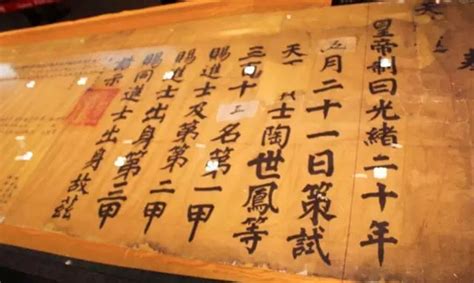 天
皇帝制曰光緒二十年
月二十一日策試
天 士陶世鳳等
三 十 名第一甲
賜進士及第第二甲
賜進士出身第三甲
賜同進士出身故茲